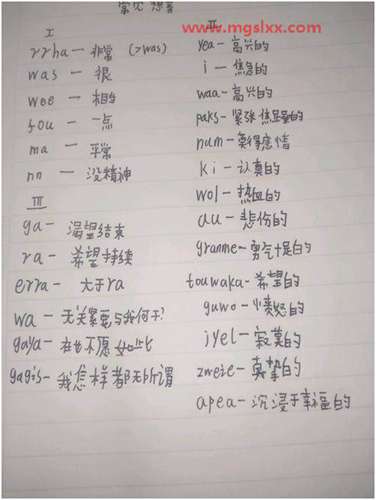 常见想音
I
rrha — 非常 (>was)
was — 很
wee — 相当
fou — 一点
ma — 平常
nn — 没精神
III
ga — 渴望结束
ra — 希望持续
erra — 大于ra
wa — 无关紧要与我何干?
gaya — 在也不愿如此
gagis — 我怎样都无所谓
II
www.mgslxx.com
yea — 高兴的
i — 焦急的
waa — 高兴的
paks — 紧张焦虑的
num — 莫得感情
ki — 认真的
wol — 热血的
au — 悲伤的
granme — 勇气十足的
touwaka — 希望的
guwo — 愤怒的
jyel — 寂寞的
zweie — 真挚的
apea — 沉浸于幸福的